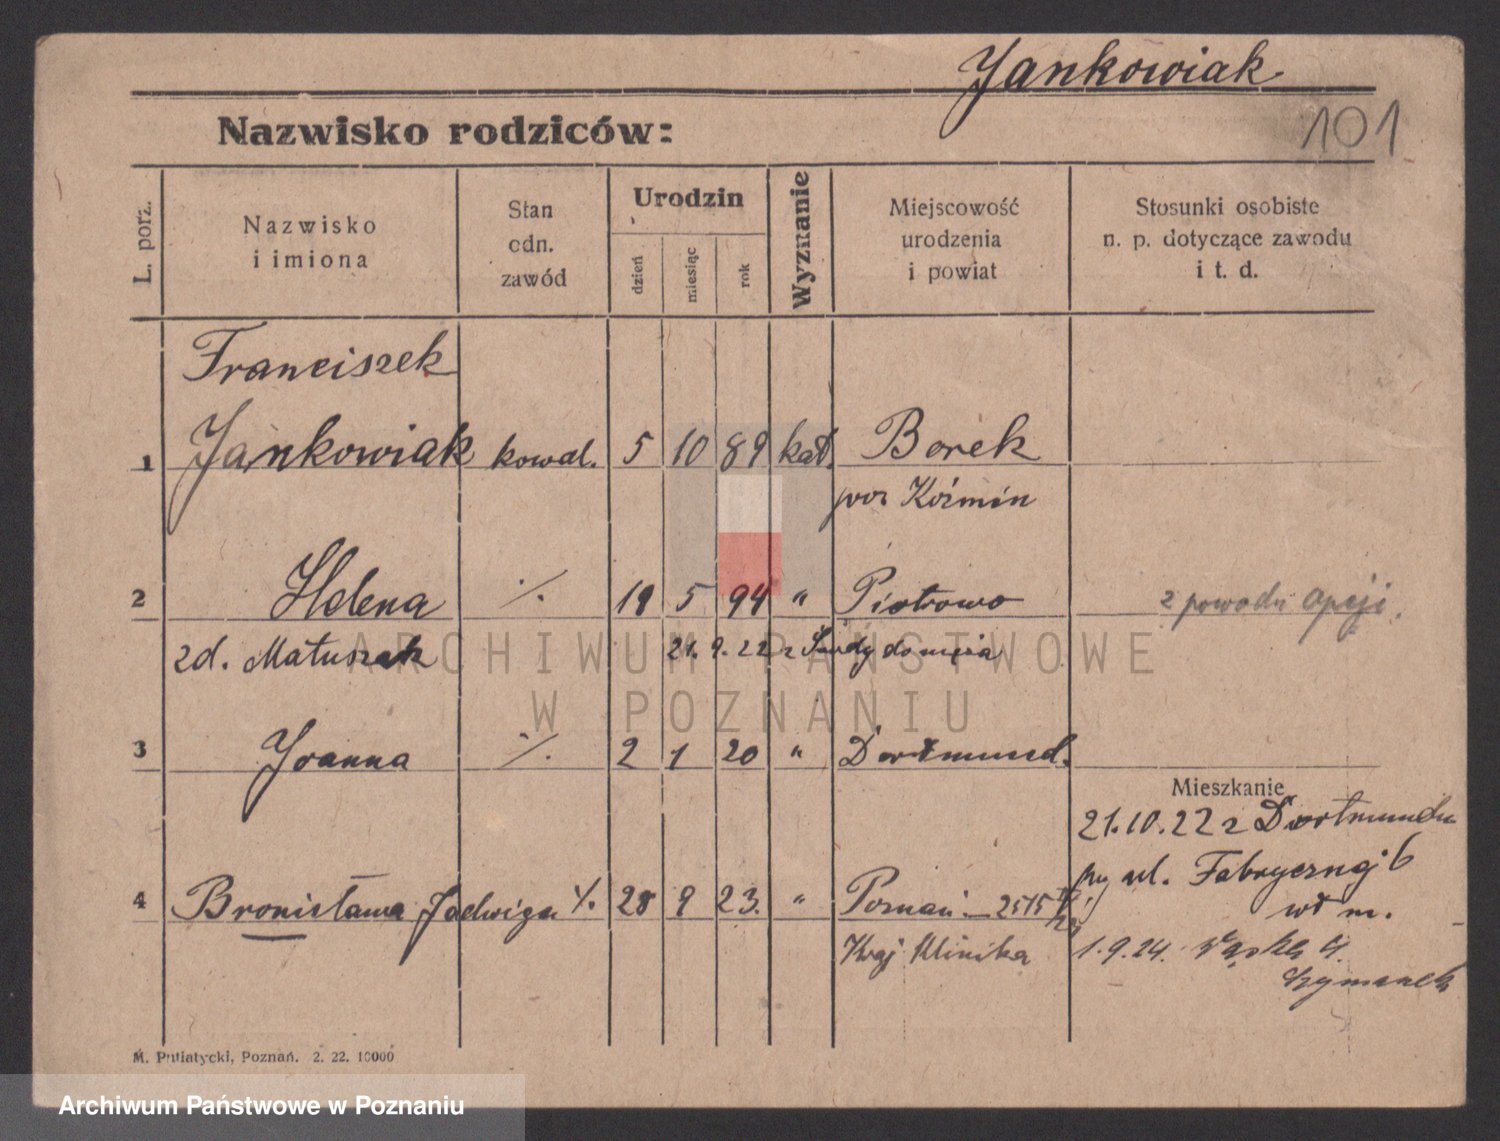 Jankowiak
101
Nazwisko rodziców:
L. porz.
Nazwisko
i imiona
Stan
odn.
zawód
Urodzin
dzień
miesiąc
rok
Wyznanie
Miejscowość
urodzenia
i powiat
Stosunki osobiste
n. p. dotyczące zawodu
i t. d.
Franciszek
1 Jankowiak kowal. 5 10 89 kat. Borek
pow Koźmin
2 Helena ·/. 19 5 94 " Piotrowo z powodu opcji.
zd. Matuszak 21.9.22 z Śmdy do męża
3 Joanna ·/. 2 1 20 " Dortmund.
Mieszkanie
21.10.22 z Dortmundu
4 Bronisława Jadwiga ·/. 28 9 23. " Poznań - 2515
py ul. Fabrycznej 6
wł m.
Kraj Klinika
1.9.24. Wąska 4.
Szymanek
M. Putiatycki, Poznań. 2. 22. 10000
ARCHIWUM PAŃSTWOWE
W POZNANIU
Archiwum Państwowe w Poznaniu